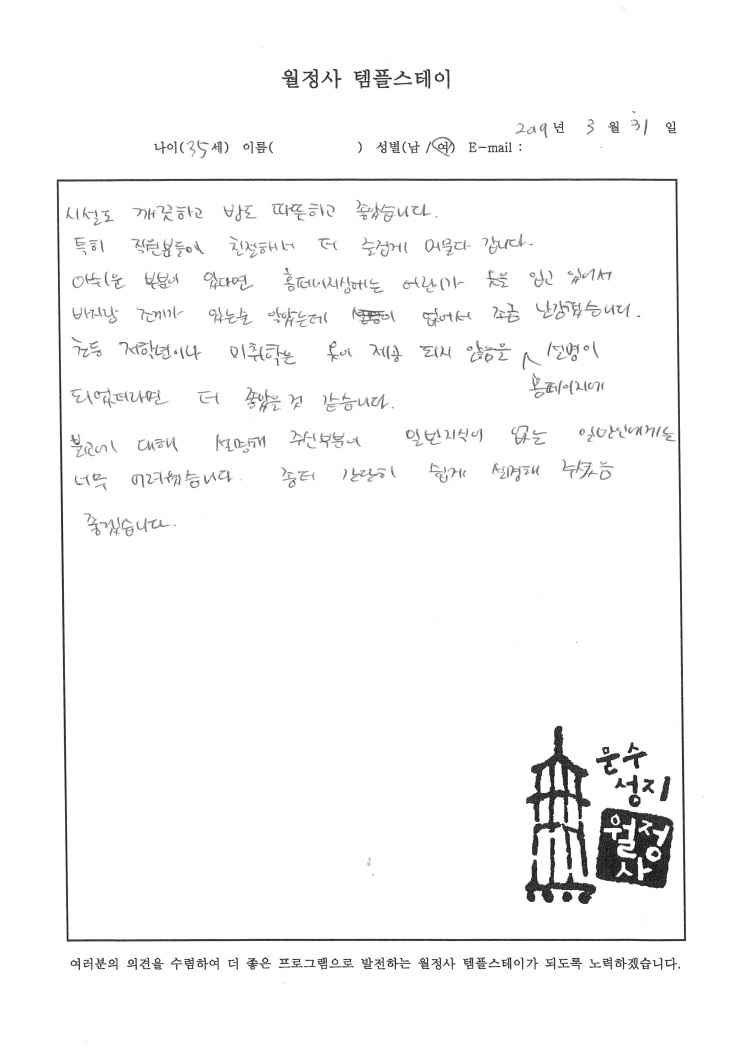 월정사 템플스테이
2019년 3월 31일
나이(35세) 이름( ) 성별(남 / 여) E-mail :
시설도 깨끗하고 방도 따뜻하고 좋았습니다.
특히 직원분들이 친절해서 더 즐겁게 머물다 갑니다.
아쉬운 부분이 있다면 홈페이지상에는 어린이가 옷을 입고 있어서
바지랑 조끼가 있는줄 알았는데 없어서 조금 난감했습니다.
초등 저학년이나 미취학은 옷이 제공 되지 않음을 홈페이지에 설명이
되었더라면 더 좋았을 것 같습니다.
불교에 대해 설명해 주신부분이 일반지식이 없는 일반인에게는
너무 어려웠습니다. 좀더 간단히 쉽게 설명해 주셨음
좋겠습니다.
문수
성지
월정
사
여러분의 의견을 수렴하여 더 좋은 프로그램으로 발전하는 월정사 템플스테이가 되도록 노력하겠습니다.